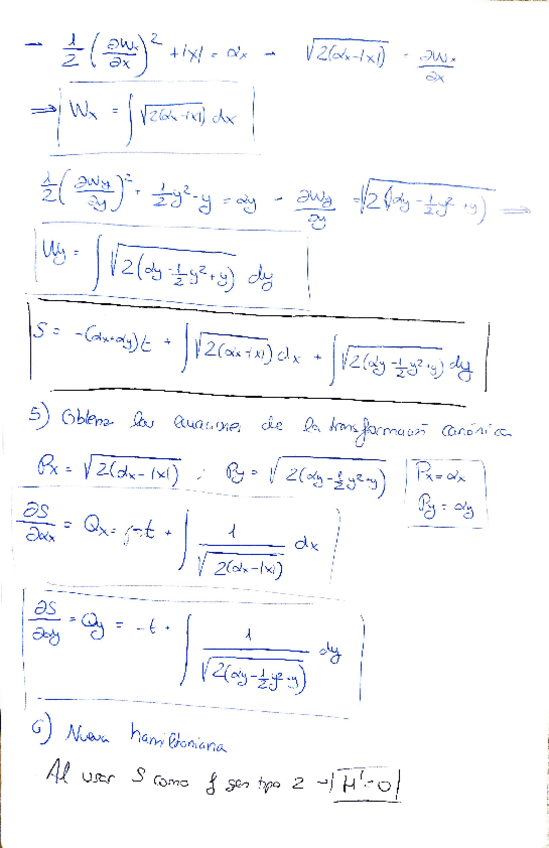 → 1/2 (∂Wx/∂x)² + |x| = αx → √(2(αx-|x|)) = ∂Wx/∂x
⇒ Wx = ∫ √(2(αx-|x|)) dx
1/2 (∂Wy/∂y)² + 1/2 y² - y = αy → ∂Wy/∂y = √(2(αy - 1/2 y² + y)) ⇒
Wy = ∫ √(2(αy - 1/2 y² + y)) dy
S = -(αx+αy)t + ∫ √(2(αx-|x|)) dx + ∫ √(2(αy - 1/2 y² + y)) dy
5) Obtener las ecuaciones de la transformación canónica
Px = √(2(αx-|x|)) ; Py = √(2(αy - 1/2 y² + y)) Px = αx
Py = αy
∂S/∂αx = Qx = -t + ∫ 1/√(2(αx-|x|)) dx
∂S/∂αy = Qy = -t + ∫ 1/√(2(αy - 1/2 y² + y)) dy
6) Nueva hamiltoniana
Al usar S como f gen tipo 2 → H' = 0